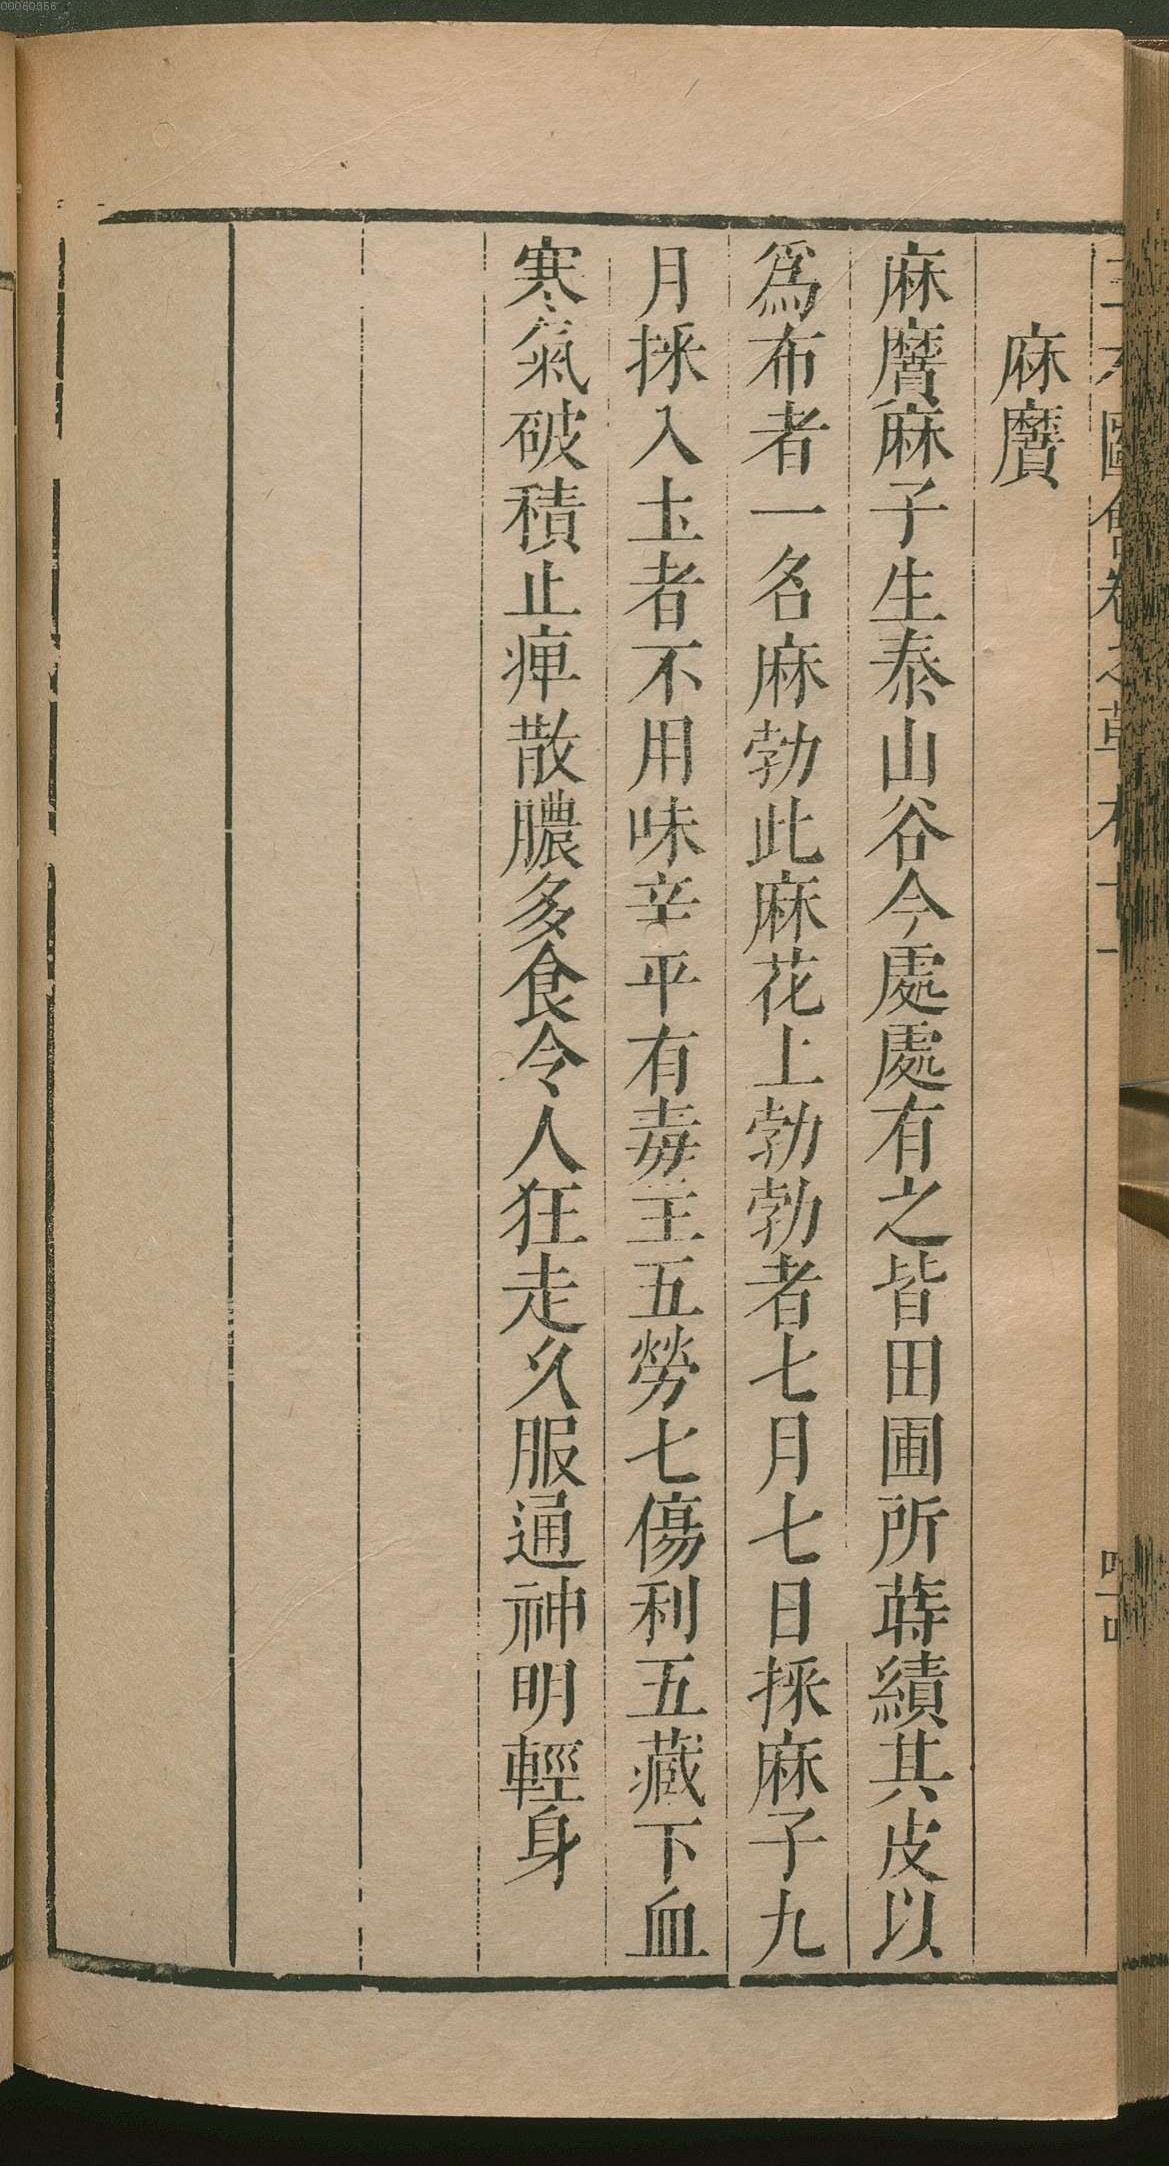 00060356
麻蕡
麻蕡麻子生泰山谷今處處有之皆田圃所蒔績其皮以
爲布者一名麻勃此麻花上勃勃者七月七日採麻子九
月採入土者不用味辛平有毒主五勞七傷利五藏下血
寒氣破積止痺散膿多食令人狂走久服通神明輕身